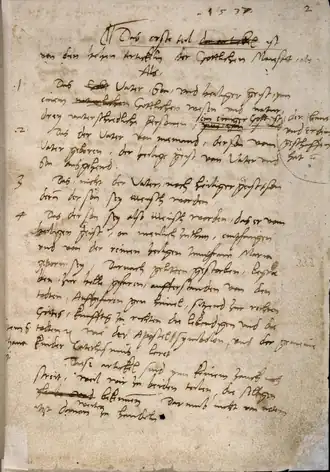 1537 2
Das erste teil ist
von den hohen artickeln der Gottlichen Maiestet, als
1 Das Vater Son und heiliger geist jnn
einem Gottlichen wesen und natur
drey unterschiedliche personen ein einiger Gott ist der himel
und erden
geschaffen
hat
2 Das der Vater von niemand, der Son vom
Vater geboren, der heilige geist vom Vater und
Son ausgehend
3 Das nicht der Vater noch heiliger geist son
dern der Son sey mensch worden
4 Das der Son sey also mensch worden, das er vom
heiligen geist on menlich zuthun, empfangen
und von der reinen heiligen Jungfraw Maria
geborn sey Darnach gelitten gestorben, begra
ben, zur helle gefaren, aufferstanden von den
todten, auffgefaren gen himel, sitzend zur rechten
Gottes, kunfftig zu richten die lebendigen und die
todten wie der Apostel Symbolon, und der gemeine
kinder Catechismus leret
Diese artickel sind jnn keinem zanck noch
streit, weil wir zu beiden teilen die selbigen
bekennen Darumb nicht von noten
itzt davon zu handeln